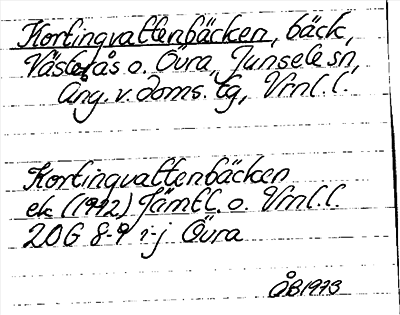 Kortingvattenbäcken, bäck,
Västerås o. Övra, Junsele sn,
Ång. v. doms. tg, Vrnl. l.
Kortingvattenbäcken
ek (1972) Jämtl. o. Vrnl. l.
20G 8-9 i-j Övra
ÅB1973